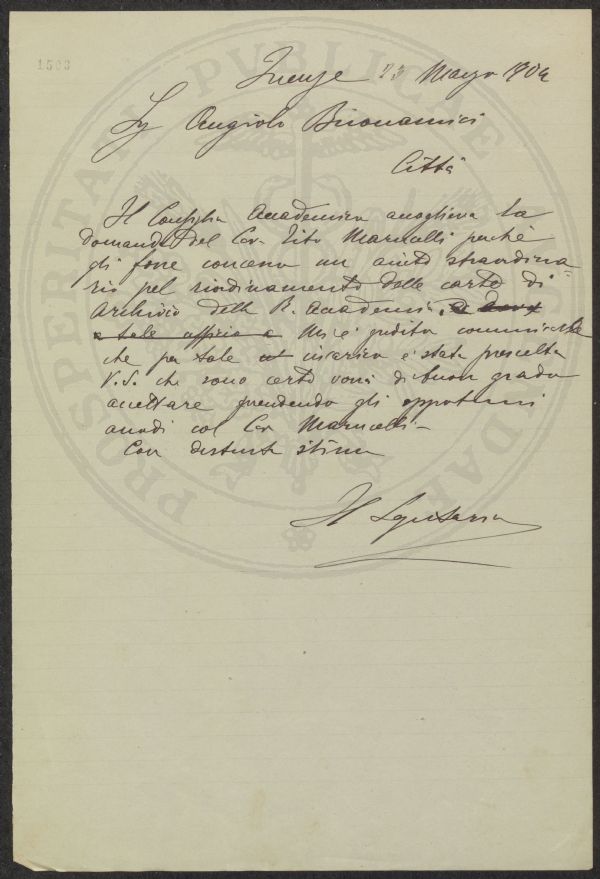 1503
Firenze 23 Marzo 1904
Sig Angiolo Buonamici
Città
Il Consiglio Accademico accoglieva la
domanda del Cav. Tito Marucelli perchè
gli fosse concesso un aiuto straordina=
rio pel riordinamento delle carte di
Archivio della R. Accademia,
e tale ufficio a Mi è gradito comunicarle
che per tale incarico è stata prescelta
V.S. che sono certo vorrà di buon grado
accettare prendendo gli opportuni
accordi col Cav Marucelli -
Con distinta stima
Il Segretario
PROSPERITATI PUBLICAE AUGENDAE